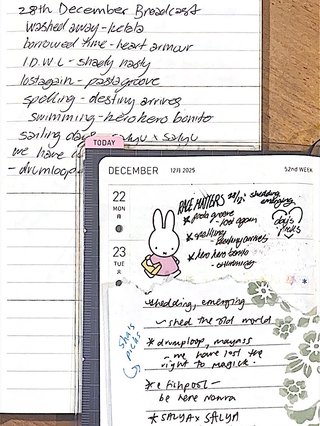 28th December Broadcast
washed away - kelela
borrowed time - heart armour
I.D.W.L - shady nasty
lostagain - pastagroove
spelling - destiny arrives
swimming - hero hero bonito
sailing days - salyu x salyu
we have
- drumloop
TODAY
DECEMBER 12月 2025 52nd WEEK
22
MON
月
23
TUE
火
RARE MATTERS shedding
emerging
* pasta groove
- lost again
* spelling
- destiny arrives
* hero hero bonito
- swimming
day's
picks
shedding, emerging
shed the old world
* drumloop, mayass
- we have lost the
right to magick.
* e fishpool -
be here
* SALYA x SALYA
she's
picks